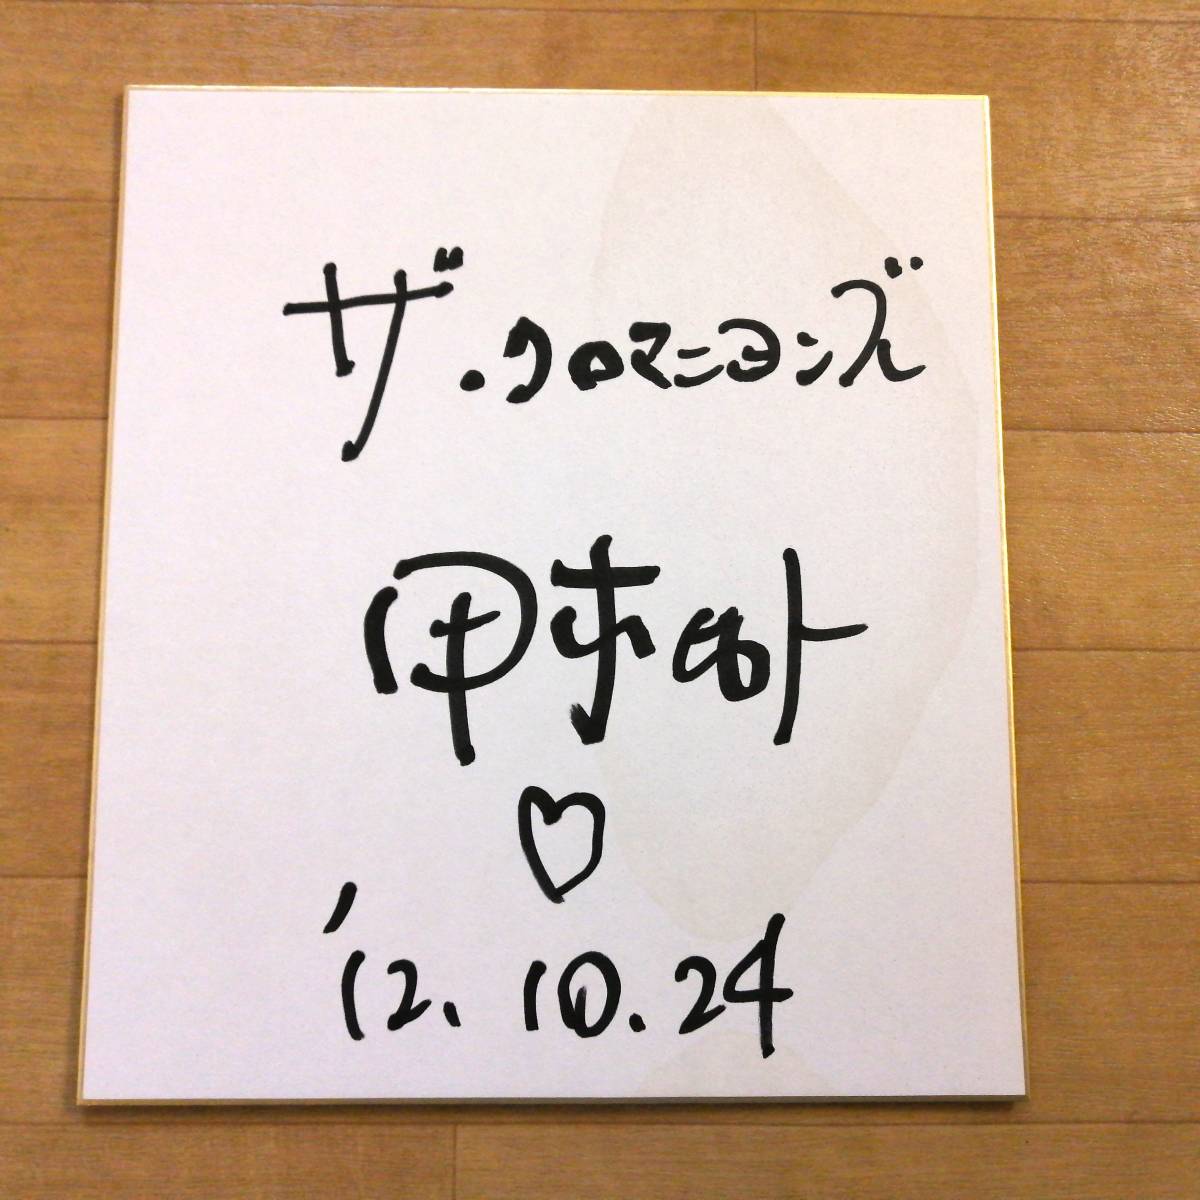 ザ・クロマニヨンズ
甲本ヒロト
♡
'12. 10. 24